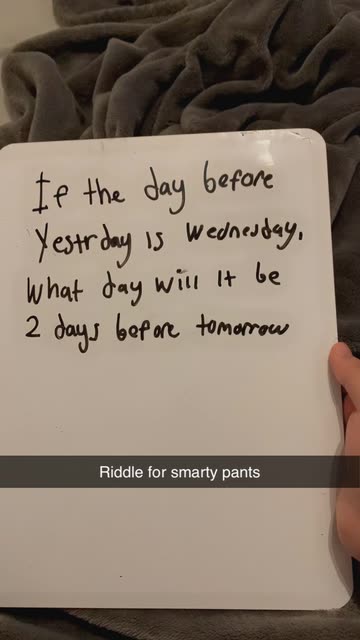 If the day before
Yestrday is Wednesday,
What day will it be
2 days before tomorrow
Riddle for smarty pants